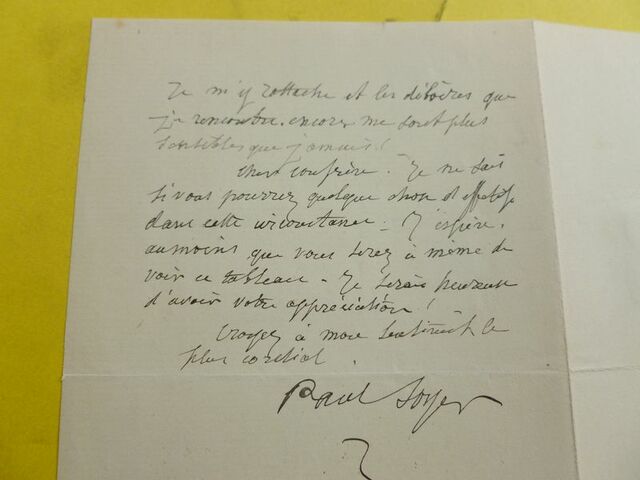 Je m'y rattache et les déboires que
je rencontre encore me sont plus
sensibles que jamais !
Cher confrère. Je ne sais
si vous pourrez quelque chose d'effectif
dans cette circonstance - J'espère,
au moins que vous serez à même de
voir ce tableau - Je serais heureux
d'avoir votre appréciation !
Croyez à mon sentiment le
plus cordial.
Paul Soyer